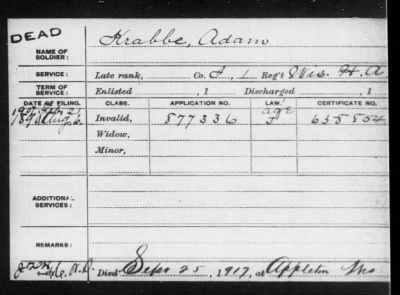 DEAD
NAME OF SOLDIER: Krabbe, Adam
SERVICE: Late rank, Co. I, 1 Reg't Wis. H. A
TERM OF SERVICE: Enlisted , 1 Discharged , 1
DATE OF FILING. CLASS. APPLICATION NO. LAW. CERTIFICATE NO.
age
1890 Aug 6 Invalid, 877336 J 635804
Widow,
Minor,
ADDITIONAL SERVICES:
REMARKS:
Died Sept 25, 1917, at Appleton Wis